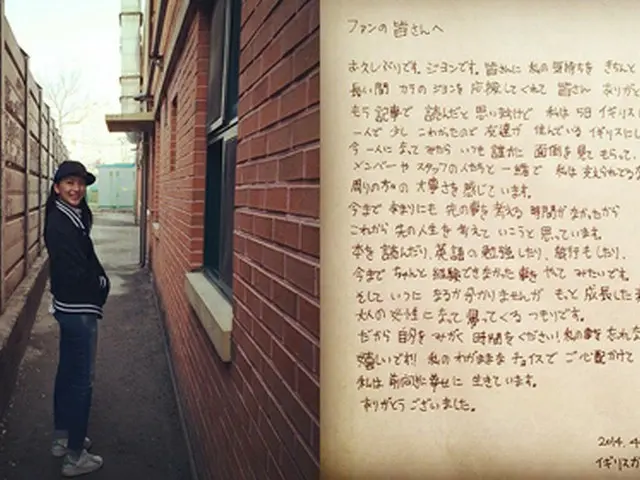 ファンの皆さんへ
お久しぶりです。ジヨンです。皆さんに 私の気持ちを きちんと
長い間 カラの ジヨンを 応援してくれて 皆さん ありがと
もう 記事で 読んだと 思いますけど 私は 5日 イギリスに
一人で 少し こわかったので 友達が 住んでいる イギリスにし
今 一人に なって みたら いつも 誰かに 面倒を 見て もらって
メンバーや スタッフの人たちと 一緒で 私は 支えられてる
周りの方々の 大事さを 感じています。
今まで あまりにも 先の事を 考える 時間が なかったから
これから 先の人生を 考えて いこうと 思っています。
本を 読んだり、英語の 勉強したり、旅行もしたり、
今まで ちゃんと 経験できなかった 事を やって みたいです。
そして いつに なるか分かりませんが もっと 成長した
大人の 女性に なって 帰ってくる つもりです。
だから 自分を みがく 時間をください! 私の事を 忘れな
嬉しいです!! 私の わがままな チョイスで ご心配かけて
私は 前向きに 幸せに 生きています。
ありがとう ございました。
2014. 4
イギリスか